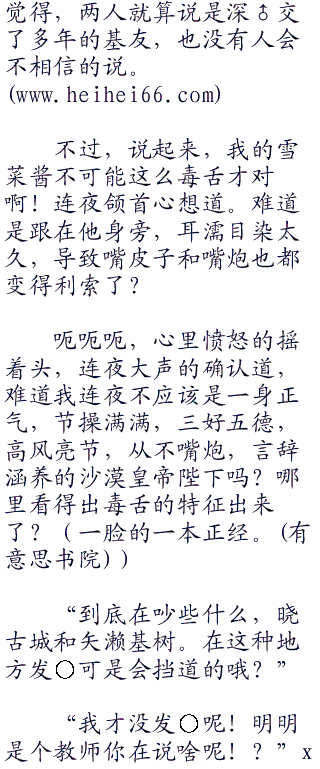 觉得，两人就算说是深♂交
了多年的基友，也没有人会
不相信的说。
(www.heihei66.com)
不过，说起来，我的雪
菜酱不可能这么毒舌才对
啊！连夜颌首心想道。难道
是跟在他身旁，耳濡目染太
久，导致嘴皮子和嘴炮也都
变得利索了？
呃呃呃，心里愤怒的摇
着头，连夜大声的确认道，
难道我连夜不应该是一身正
气，节操满满，三好五德，
高风亮节，从不嘴炮，言辞
涵养的沙漠皇帝陛下吗？哪
里看得出毒舌的特征出来
了？（一脸的一本正经。(有
意思书院)）
“到底在吵些什么，晓
古城和矢濑基树。在这种地
方发○可是会挡道的哦？”
“我才没发○呢！明明
是个教师你在说啥呢！？”x